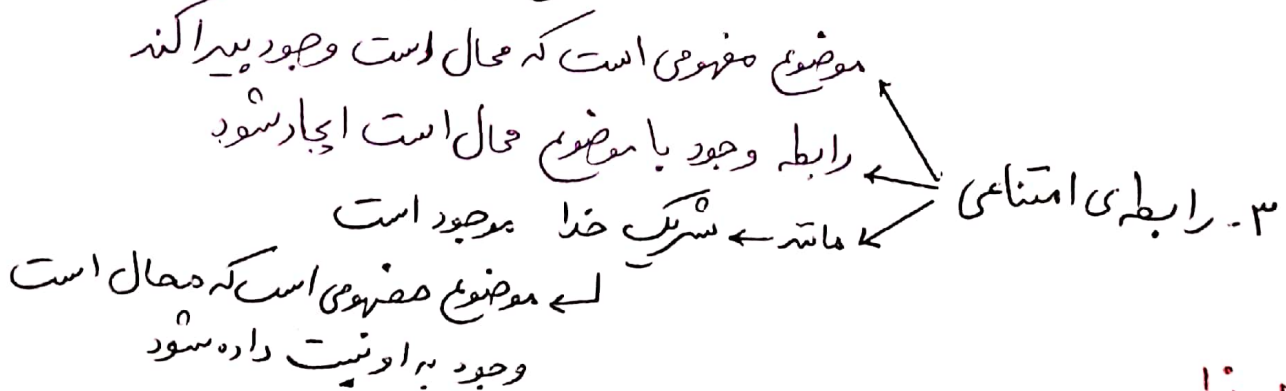 ۳- رابطه‌ی امتناعی
موضوع مفهومی است که محال است وجود پیدا کند
رابطه وجود با موضوع محال است ایجاد شود
مانند ← شریک خدا موجود است
موضوع مفهومی است که محال است
وجود به او نسبت داده شود